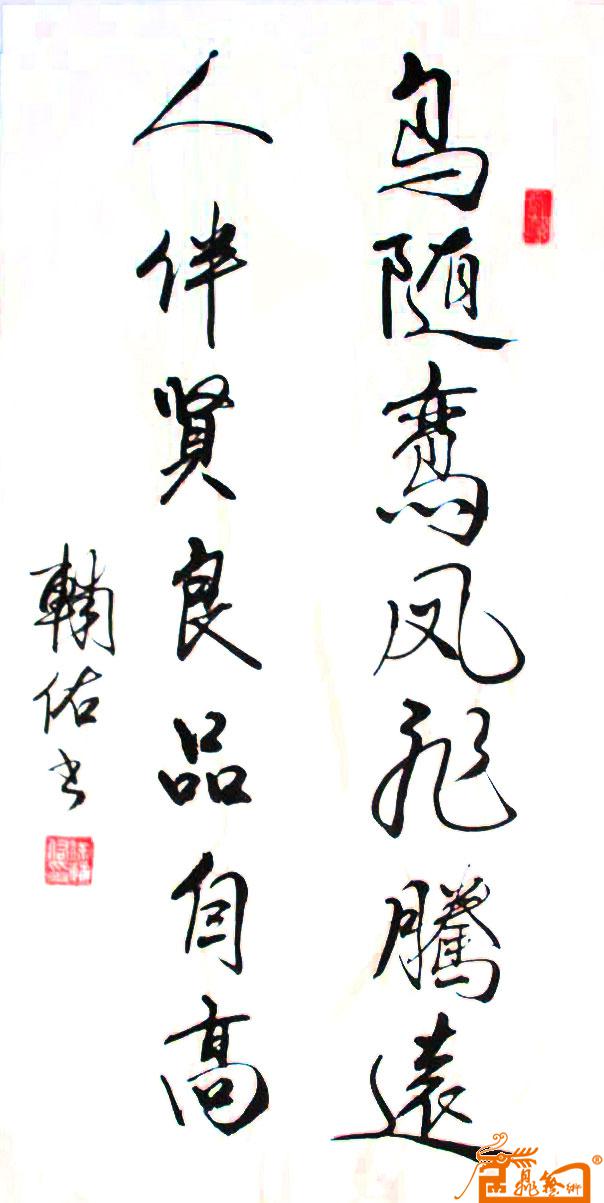 鸟随鸾凤飞腾遠
人伴賢良品自高
輔佑书